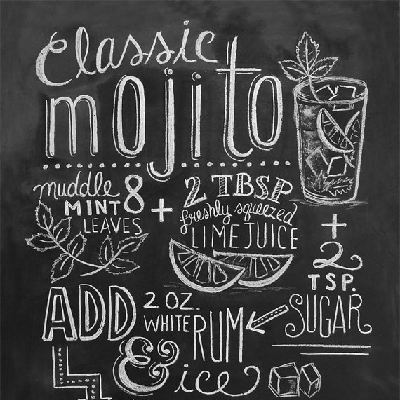 classic
mojito
muddle 8 MINT LEAVES + 2 TBSP freshly squeezed LIME JUICE
+ 2 TSP. SUGAR
ADD 2 OZ. WHITE RUM
& ice